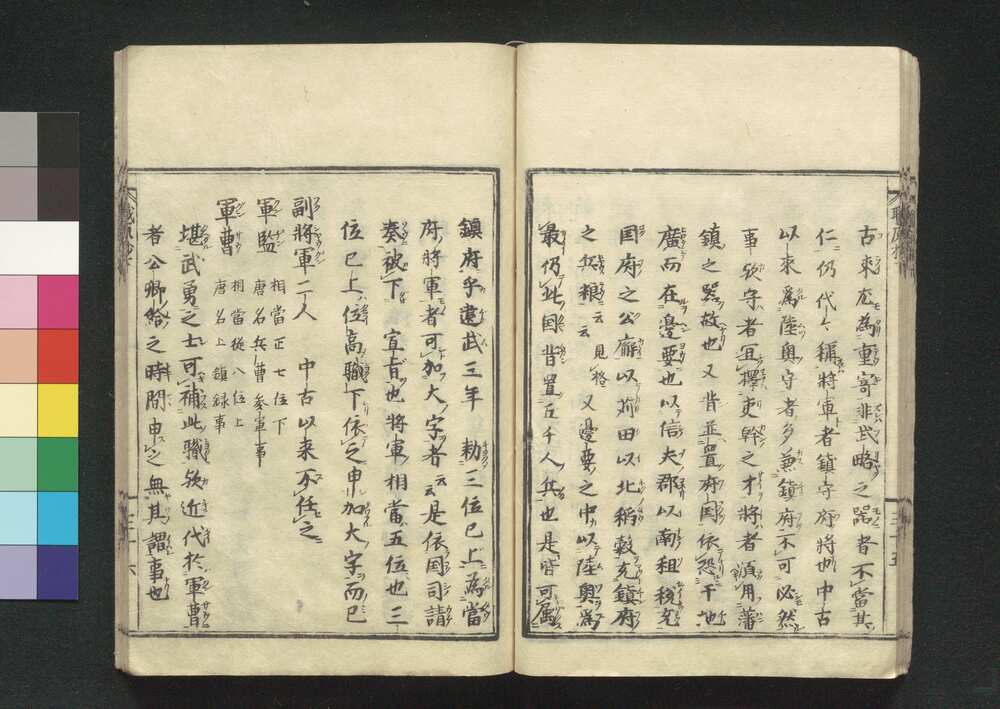 古來尤為重寄非武略之器者不當其
仁仍代々稱將軍者鎮守府將也中古
以來為陸奥守者多兼鎮府不可必然
事欤守者宜擇吏幹之才將者須用藩
鎮之器故也又昔並置府国依恐于地
廣而在邊要也以信夫郡以南租税充
国府之公廨以苅田以北稻穀充鎮府
之兵粮云云見格又邊要之中以陸奥為
最仍此国昔置五千人兵也是皆可属
鎮府乎建武三年 勅三位已上為當
府將軍者可加大字者云云是依国司請
奏被下 宣旨也將軍相當五位也三
位已上位高職下依之申加大字而已
副將軍二人 中古以来不任之
軍監 相當正七位下
唐名兵曹参軍事
軍曹 相當從八位上
唐名上鎮録事
堪武勇之士可補此職欤近代於軍曹
者公卿給之時間申之無其謂事也
職原抄 三十五
三十六